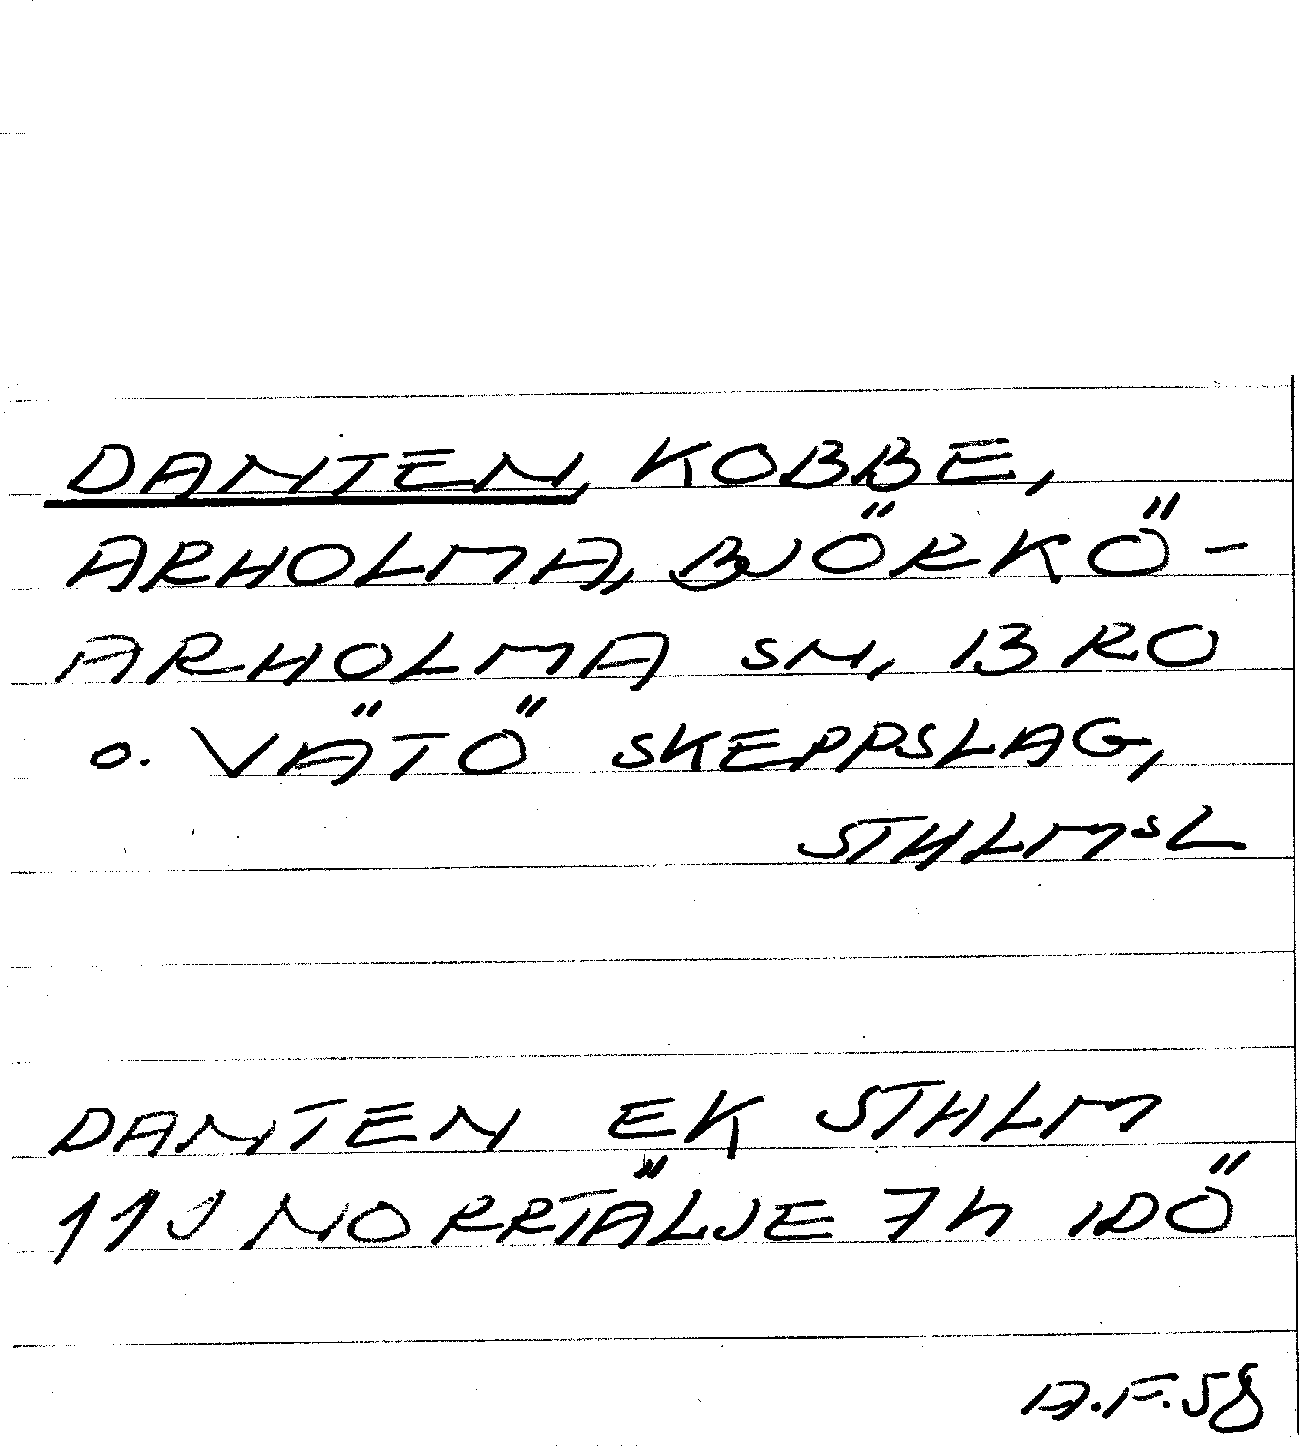 DANTEN, KOBBE,
ARHOLMA, BJÖRKÖ-
ARHOLMA SN, BRO
o. VÄTÖ SKEPPSLAG,
STHLMSL
DANTEN EK STHLM
11J NORRTÄLJE 7h IDÖ
A.F.58